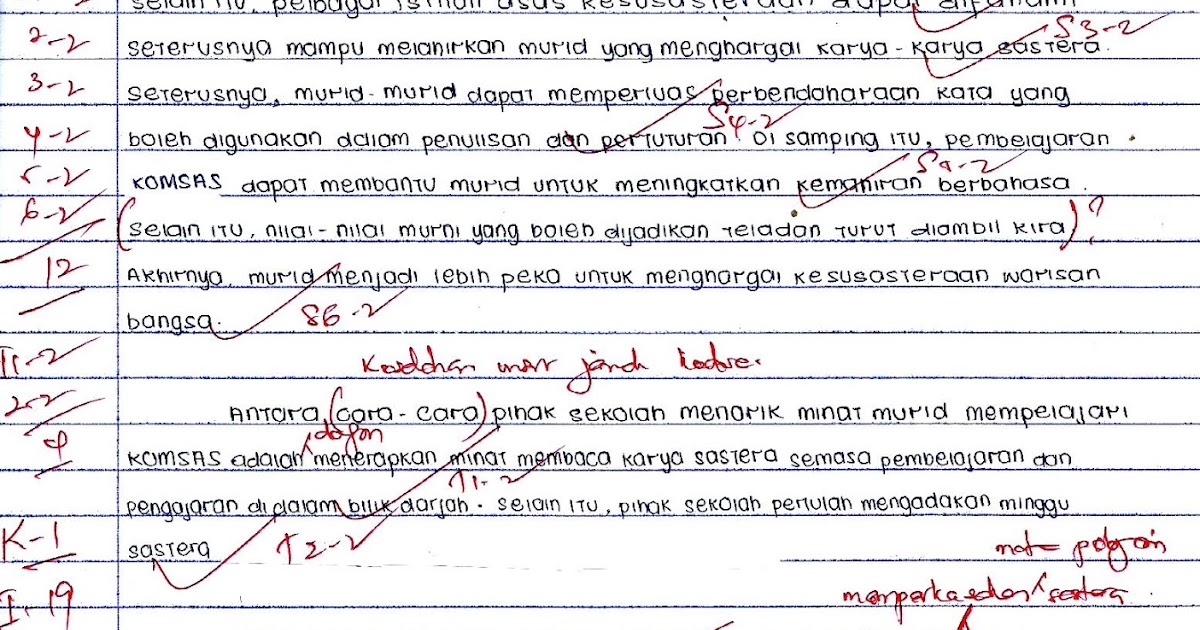 selain itu, pelbagai istilah asas kesusasteraan dapat difahami
2-2 seterusnya mampu melahirkan murid yang menghargai karya-karya sastera. S3-2
3-2 seterusnya, murid-murid dapat memperluas perbendaharaan kata yang
4-2 boleh digunakan dalam penulisan dan pertuturan. S4-2 Di samping itu, pembelajaran
5-2 KOMSAS dapat membantu murid untuk meningkatkan kemahiran berbahasa. S4-2
6-2 (selain itu, nilai-nilai murni yang boleh dijadikan teladan turut diambil kira)?
12 Akhirnya, murid menjadi lebih peka untuk menghargai kesusasteraan warisan
bangsa. S6-2
T1-2
2-2 Antara (cara-cara) pihak sekolah menarik minat murid mempelajari
4 KOMSAS adalah dengan menerapkan minat membaca karya sastera semasa pembelajaran dan
T1-2
pengajaran di dalam bilik darjah. selain itu, pihak sekolah perlulah mengadakan minggu
K-1 sastera T2-2
I-19 sastera